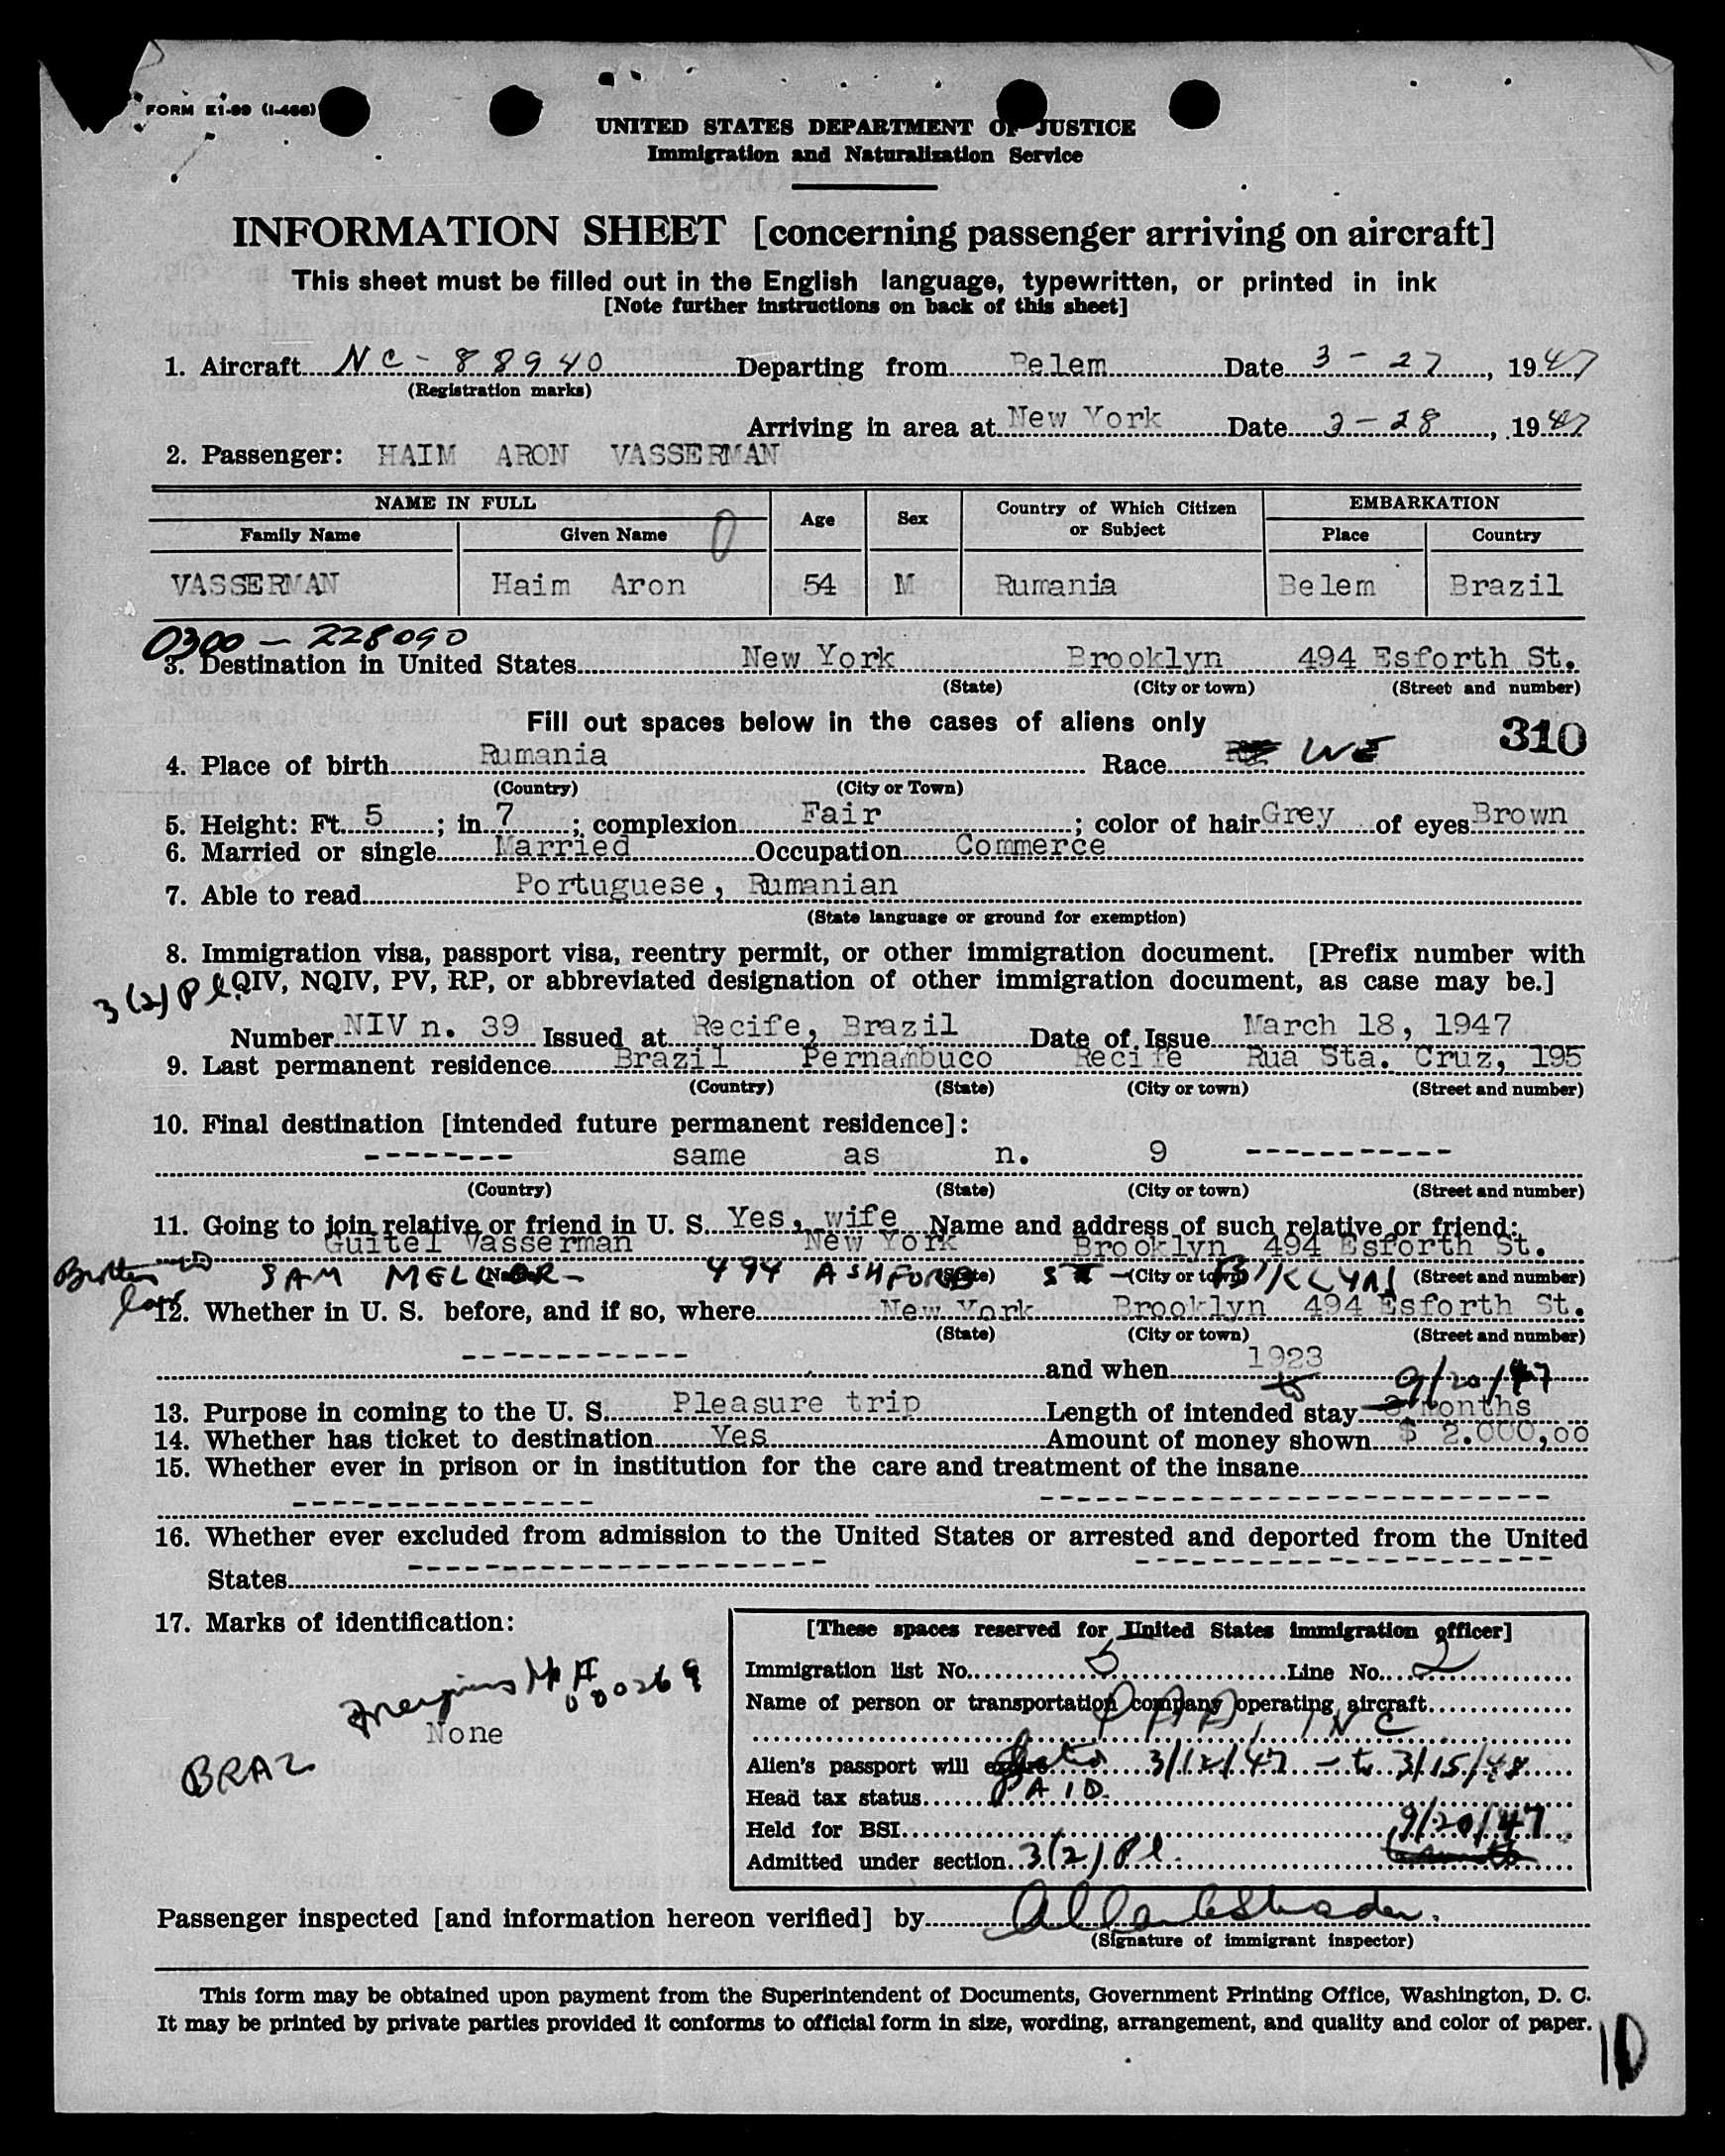 FORM I-99 (I-466)
UNITED STATES DEPARTMENT OF JUSTICE
Immigration and Naturalization Service
INFORMATION SHEET [concerning passenger arriving on aircraft]
This sheet must be filled out in the English language, typewritten, or printed in ink
[Note further instructions on back of this sheet]
1. Aircraft NC-88940 Departing from Belem Date 3-27, 1947
(Registration marks)
Arriving in area at New York Date 3-28, 1947
2. Passenger: HAIM ARON VASSERMAN
NAME IN FULL Age Sex Country of Which Citizen or Subject EMBARKATION
Family Name Given Name Place Country
VASSERMAN Haim Aron 54 M Rumania Belem Brazil
0300 - 228090
3. Destination in United States New York Brooklyn 494 Esforth St.
(State) (City or town) (Street and number)
Fill out spaces below in the cases of aliens only 310
4. Place of birth Rumania Race
(Country) (City or Town)
5. Height: Ft. 5; in. 7; complexion Fair; color of hair Grey of eyes Brown
6. Married or single Married Occupation Commerce
7. Able to read Portuguese, Rumanian
(State language or ground for exemption)
8. Immigration visa, passport visa, reentry permit, or other immigration document. [Prefix number with
3(2) Pl. QIV, NQIV, PV, RP, or abbreviated designation of other immigration document, as case may be.]
Number NIV n. 39 Issued at Recife, Brazil Date of Issue March 18, 1947
9. Last permanent residence Brazil Pernambuco Recife Rua Sta. Cruz, 195
(Country) (State) (City or town) (Street and number)
10. Final destination [intended future permanent residence]:
-------- same as n. 9 -----------
(Country) (State) (City or town) (Street and number)
11. Going to join relative or friend in U. S. Yes, wife Name and address of such relative or friend:
Guitel Vasserman New York Brooklyn 494 Esforth St.
Brother in law SAM MELLNOR - 494 ASHFORD ST - B'KLYN
(Name) (State) (City or town) (Street and number)
12. Whether in U. S. before, and if so, where New York Brooklyn 494 Esforth St.
(State) (City or town) (Street and number)
------------ and when 1923
to 9/20/47
13. Purpose in coming to the U. S. Pleasure trip Length of intended stay months
14. Whether has ticket to destination Yes Amount of money shown $ 2.000,00
15. Whether ever in prison or in institution for the care and treatment of the insane
16. Whether ever excluded from admission to the United States or arrested and deported from the United
States
17. Marks of identification:
000269
None
BRAZ
[These spaces reserved for United States immigration officer]
Immigration list No. 5 Line No. 2
Name of person or transportation company operating aircraft
PAA, INC
Alien's passport will expire 3/12/47 - to 3/15/48
Head tax status PAID.
Held for BSI 9/20/47
Admitted under section 3(2) Pl.
Passenger inspected [and information hereon verified] by
(Signature of immigrant inspector)
This form may be obtained upon payment from the Superintendent of Documents, Government Printing Office, Washington, D. C.
It may be printed by private parties provided it conforms to official form in size, wording, arrangement, and quality and color of paper.
10